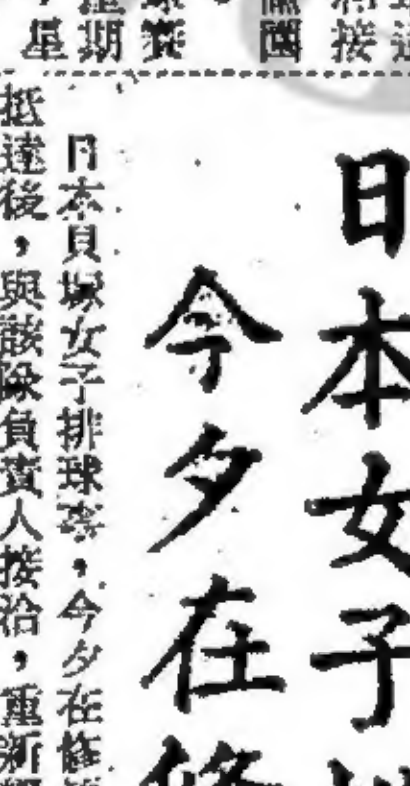 接
國
球賽
星期
，星
日本女子
今夕在修
日本貝塚女子排球，今夕在修
抵達後，與該隊負責人接洽，重新